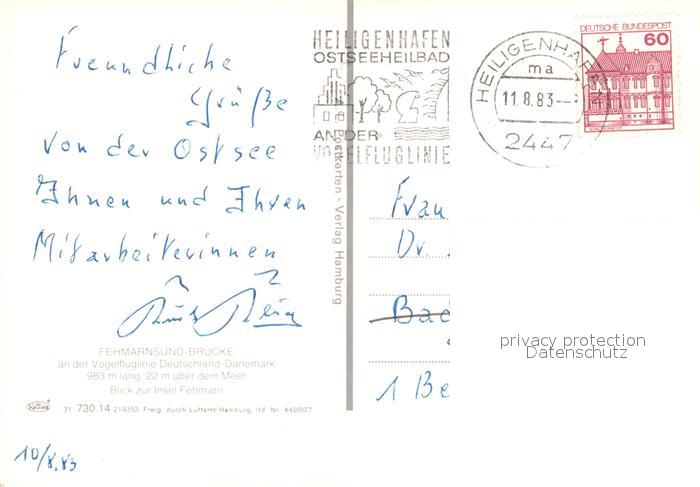 Freundliche
Grüße
von der Ostsee
Ihnen und Ihren
Mitarbeiterinnen
FEHMARNSUND-BRÜCKE
an der Vogelfluglinie Deutschland-Dänemark
983 m lang, 22 m über dem Meer
Blick zur Insel Fehmarn
31. 730.14 219353 Freig. durch Luftamt Hamburg, lfd. Nr. 440007
10/8.83
Postkarten - Verlag Hamburg
HEILIGENHAFEN
OSTSEEHEILBAD
AN DER
VOGELFLUGLINIE
HEILIGENHAF
ma
11.8.83--
2447
DEUTSCHE BUNDESPOST
60
Frau
Dr.
Bad
1 Be
privacy protection
Datenschutz